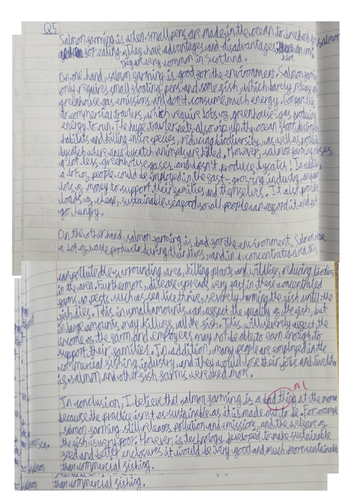 Q5
Salmon farming is when small pens are made in the ocean to
for eating. They have advantages and disadvantages
very common in Scotland.
On one hand, salmon farming is good for the environment. Salmon
only requires small floating pens and some fish, which barely
greenhouse gas emissions, and don't consume much energy.
to commercial trawlers, which require lots of greenhouse gas
energy to run. The huge trawler nets also rip up the ocean floor, destroying
habitats and killing entire species, reducing biodiversity, as well as
bycatch where many bycatch animals are killed. However, salmon farming uses
a lot less greenhouse gases and don't produce bycatch! In addition
a lot of people could be employed in the fast-growing industry,
lots of money to support their families and themselves. It also
loads of cheap, sustainable seafood so that people can afford it and not
go hungry.
On the other hand, salmon farming is bad for the environment. Salmon
a lot of waste products during their lives, and in a concentrated area this
can pollute the surrounding area, killing plants and wildlife, reducing
in the area. Furthermore, disease spreads very fast in these concentrated
farms, as pests such as sea lice thrive, severely harming the fish until the
fish dies. This in small amounts can affect the quality of the fish, but
in large amounts, may kill use all the fish. This will severely affect the
income of the farm and employees may not be able to earn enough to
support their families. In addition, many people are employed in the
commercial fishing industry, and they would lose their jobs and livelihoods
if salmon and other fish farms were used more.
A1
In conclusion, I believe that salmon farming is a bad thing at the moment
because the practice isn't as sustainable as it is made out to be. For example
salmon farming still releases pollution and emissions, and the welfare of
the fish is very poor. However, if technology developed to make sustainable
feed and better enclosures, it would be very good and much more sustainable
than commercial fishing.
than commercial fishing.